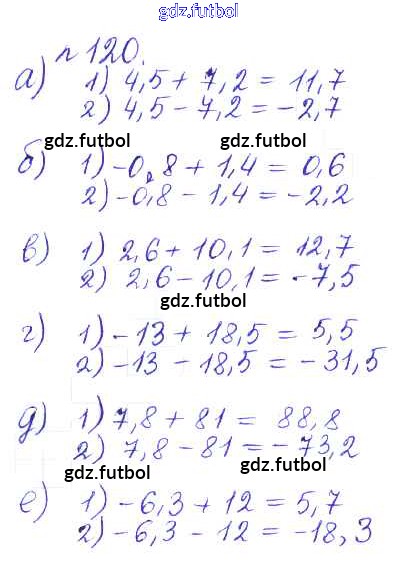 gdz.futbol
n 120.
а) 1) 4,5 + 7,2 = 11,7
2) 4,5 - 7,2 = -2,7
gdz.futbol gdz.futbol
б) 1) -0,8 + 1,4 = 0,6
2) -0,8 - 1,4 = -2,2
в) 1) 2,6 + 10,1 = 12,7
2) 2,6 - 10,1 = -7,5
gdz.futbol
г) 1) -13 + 18,5 = 5,5
2) -13 - 18,5 = -31,5
д) 1) 7,8 + 81 = 88,8
2) 7,8 - 81 = -73,2
gdz.futbol gdz.futbol
е) 1) -6,3 + 12 = 5,7
2) -6,3 - 12 = -18,3